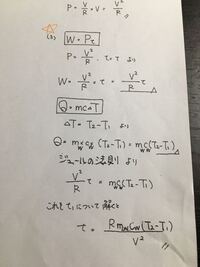 P = V/R × V = V²/R
(3) W = Pτ
P = V²/R , τ=τ より
W = V²/R × τ = V²/R τ
Q = mcΔT
ΔT = T₂ - T₁ より
Q = m_w c_w (T₂ - T₁) = m_w c_w (T₂ - T₁)
ジュールの法則より
V²/R τ = m_w c_w (T₂ - T₁)
これをτについて解くと
τ = R m_w c_w (T₂ - T₁) / V²